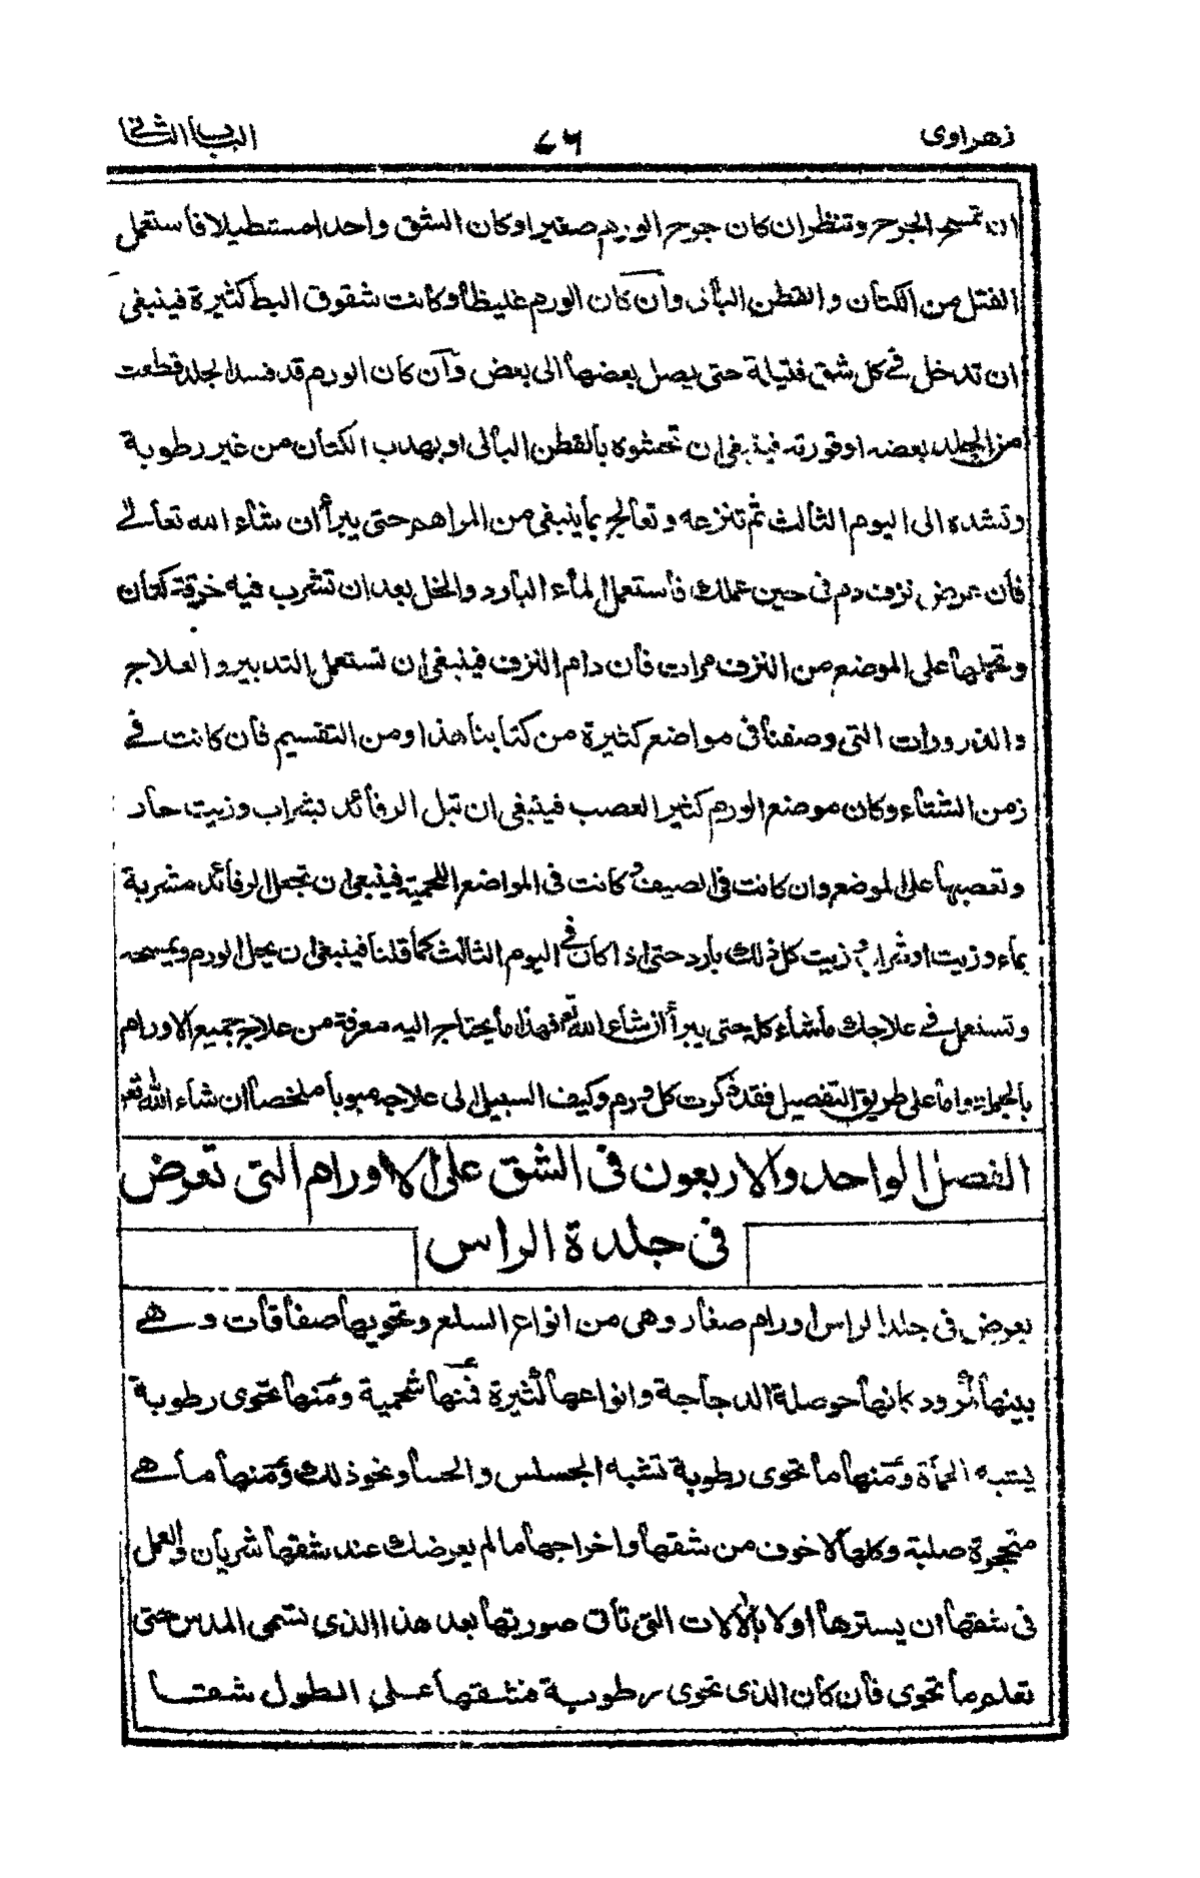 زهراوى ٧٦ الباب الثانى
ان تمسح الجرح وتنظر ان كان جرح الورم صغيرا وكان الشق واحدا مستطيلا فاستعمل
الفتل من الكتان والقطن البالى وان كان الورم غليظا وكانت شقوق البط كثيرة فينبغى
ان تدخل فى كل شق فتيلة حتى يصل بعضها الى بعض وان كان الورم قد فسد الجلد قطعت
من الجلد بعضه او قورته فينبغى ان تحشوه بالقطن البالى او بهدب الكتان من غير رطوبة
وتشده الى اليوم الثالث ثم تنزعه وتعالج بما ينبغى من المراهم حتى يبرأ ان شاء الله تعالى
فان عرض نزف دم فى حين عملك فاستعمل الماء البارد والخل بعد ان تشرب فيه خرقة كتان
وتحملها على الموضع من النزف مرات فان دام النزف فينبغى ان تستعمل التدبير والعلاج
والذرورات التى وصفنا فى مواضع كثيرة من كتابنا هذا ومن التقسيم فان كانت فى
زمن الشتاء وكان موضع الورم كثير العصب فينبغى ان تبل الرفائد بشراب وزيت حار
وتعصبها على الموضع وان كانت فى الصيف وكانت فى المواضع اللحمية فينبغى ان تجعل الرفائد مشربة
بماء وزيت او شراب وزيت كل ذلك بارد حتى اذا كان فى اليوم الثالث كما قلنا فينبغى ان يحل الورم ويمسحه
وتستعمل فى علاجك ما شاء كله حتى يبرأ ان شاء الله تعم فهذا ما يحتاج اليه معرفة من علاج جميع الاورام
بالجملة واما على طريق التفصيل فقد ذكرت كل ورم وكيف السبيل الى علاجه مبوبا ملخصا ان شاء الله تعم
الفصل الواحد والاربعون فى الشق على الاورام التى تعرض
فى جلدة الراس
يعرض فى جلد الراس اورام صغار وهى من انواع السلع وتحويها صفاقات وهى
بينها كانها حوصلة الدجاجة وانواعها كثيرة فمنها شحمية ومنها تحوى رطوبة
يشبه الحمأة ومنها ما تحوى رطوبة تشبه والحسا ونحو ذلك ومنها ما هى
متحجرة صلبة وكلها لا خوف من شقها واخراجها ما لم يعرضك عند شقها شريان والعمل
فى شقها ان يسترها اولا بالالات التى تاق صورتها بعد هذا الذى تسمى المدس حتى
تعلم ما تحوى فان كان الذى تحوى رطوبة فشقها على الطول شقا